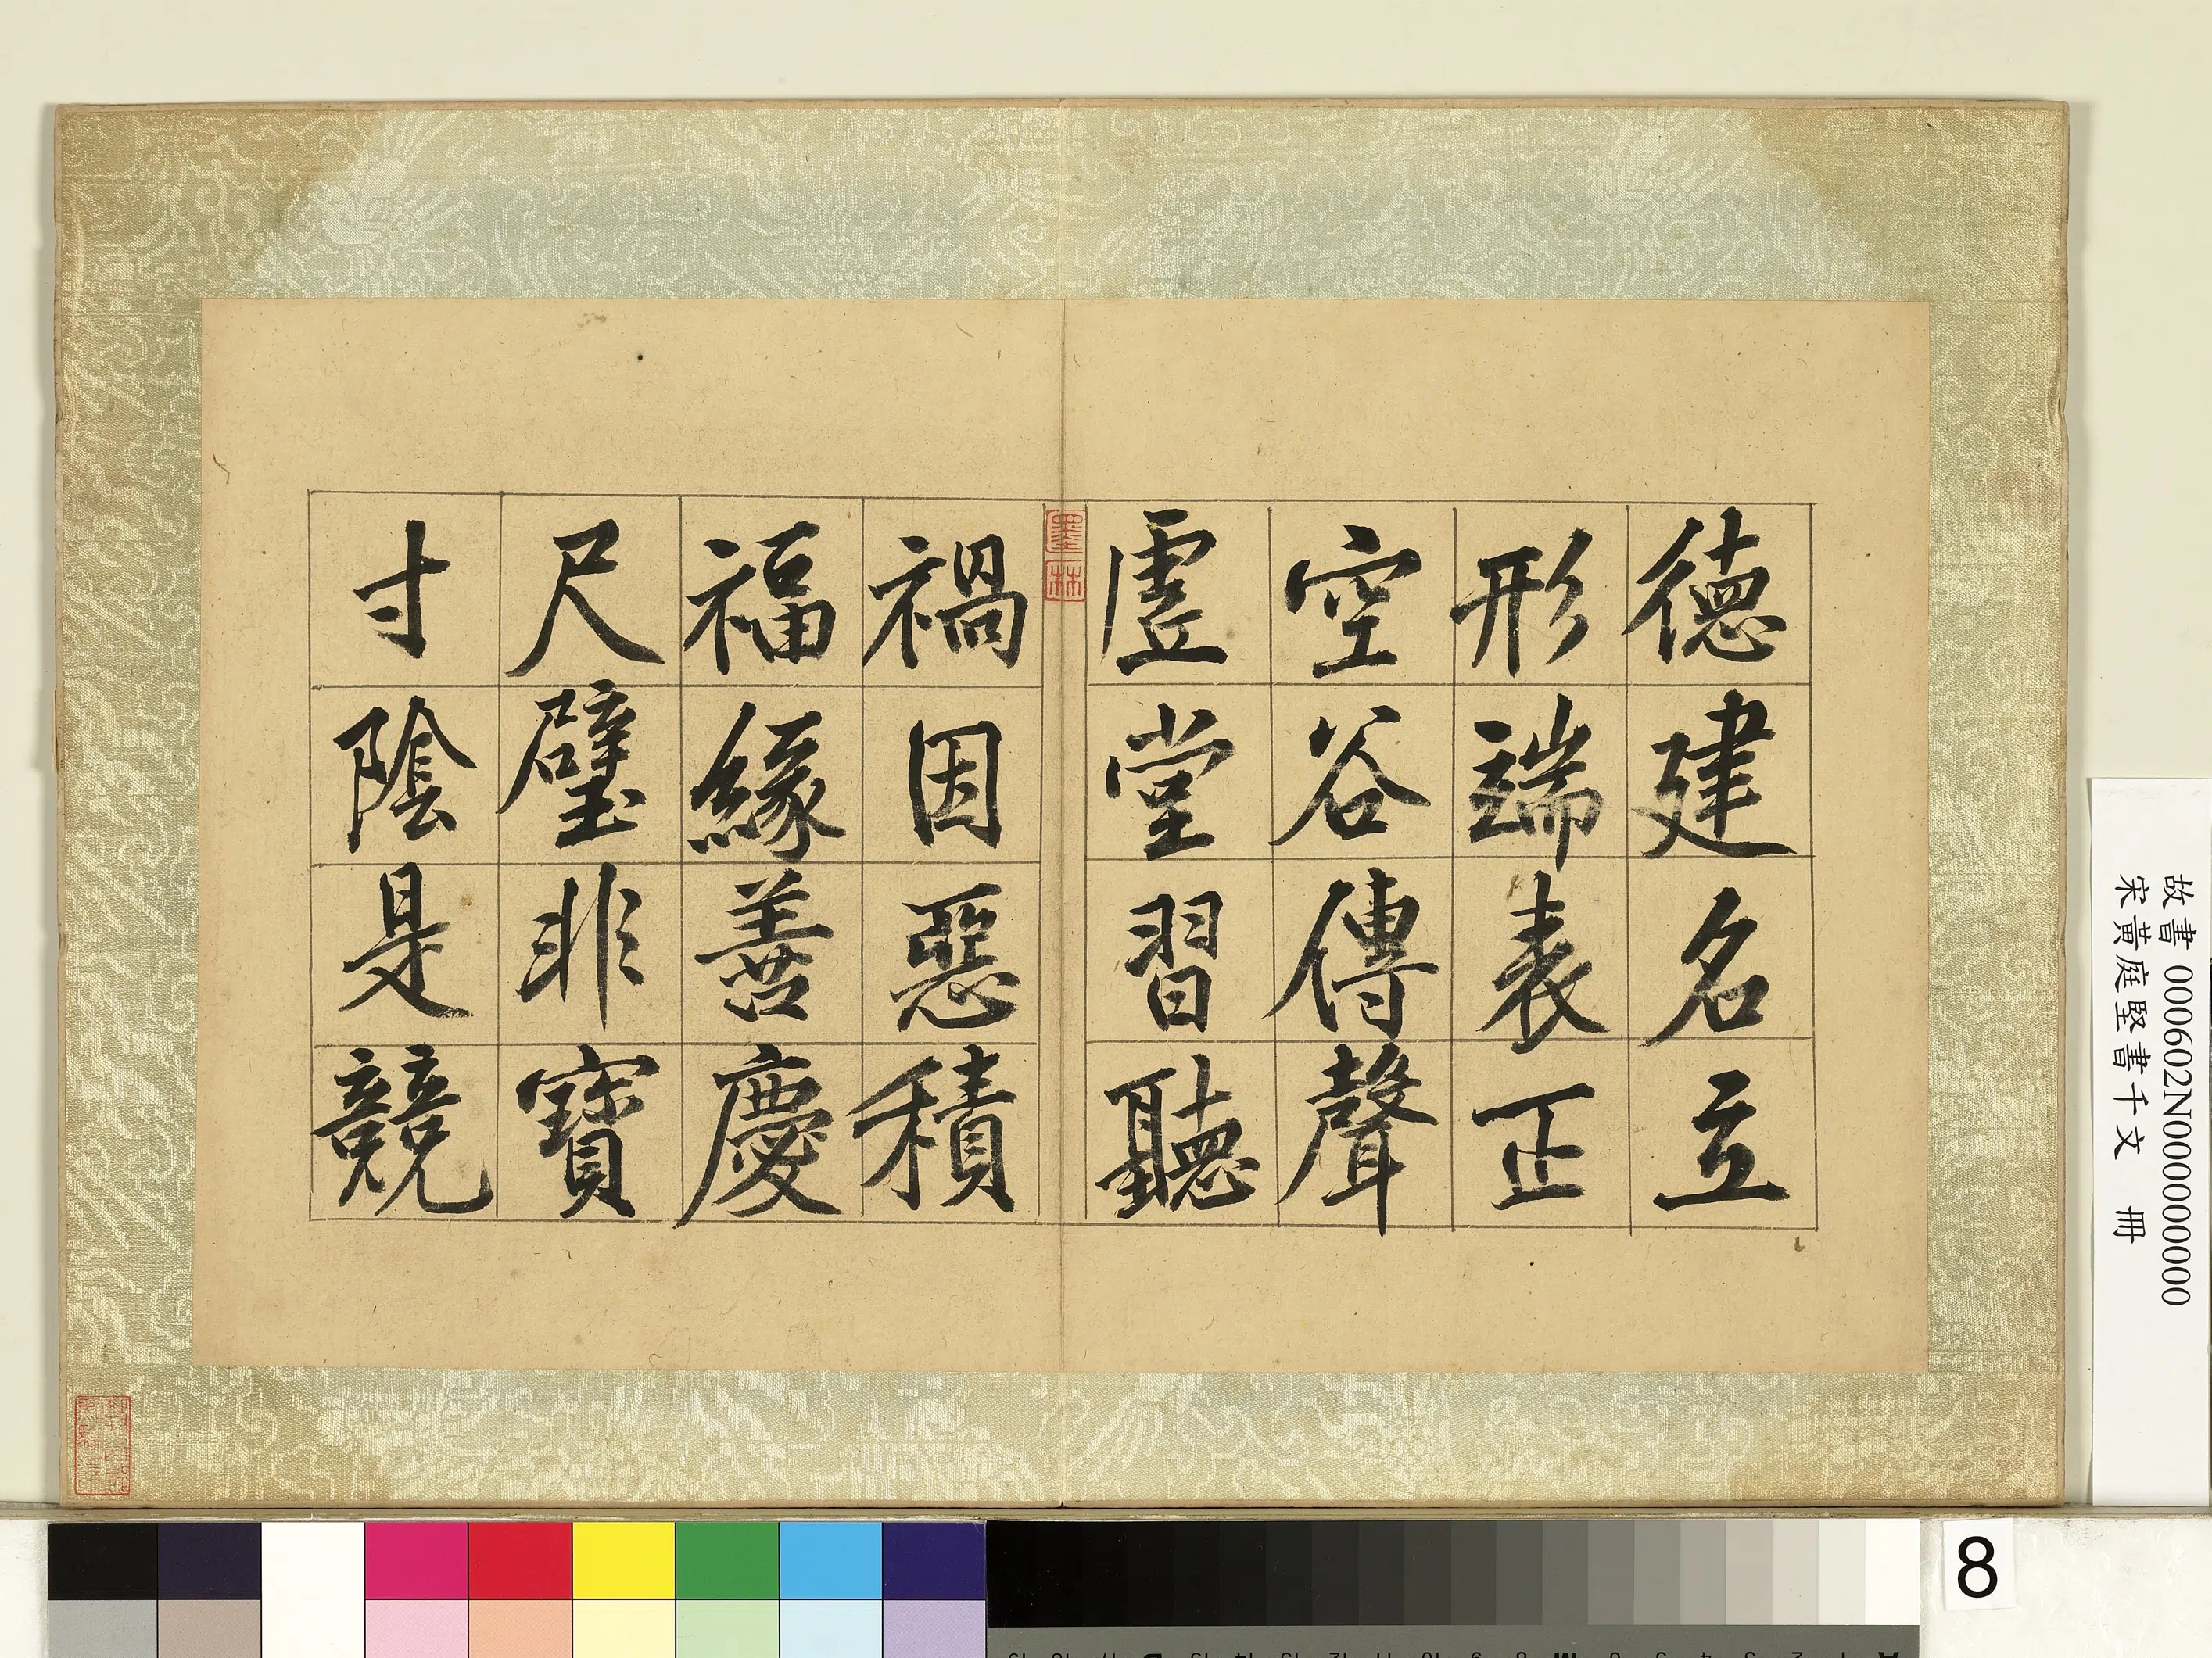 德建名立
形端表正
空谷傳聲
虛堂習聽
禍因惡積
福緣善慶
尺璧非寶
寸陰是競
墨林
故書 000602N000000000
宋黃庭堅書千文 冊
8